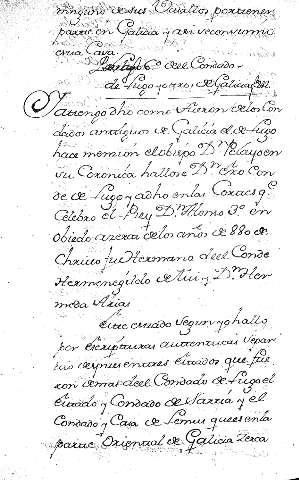 ninguno de sus Vasallos pertenez
parte en Galicia y asi se conrumio
en su Casa
Cap. 6º del Condado
de Lugo y otros de Galicia
Ya tengo dho como fueron de los Con
dados antiguos de Galicia el de Lugo
hace mension el obispo Dn Pelayo en
su Coronica hallose Dn Ero Con
de de Lugo y a dho en las Cortes q.e
Celebro el Rey Dn Alonso 3º en
Obiedo acerca de los años de 880 de
Christo fue Hermano de el Conde
Hermenegildo de Tui y Dn Her
meda Arias
Este estado segun yo hallo
por Escripturas autenticas se par
tio despues en tres Estados que fue
ron demas de el Condado de Lugo el
Estado y Condado de Sarria y el
Condado y Casa de Lemus que es en la
parte Oriental de Galicia Zerca